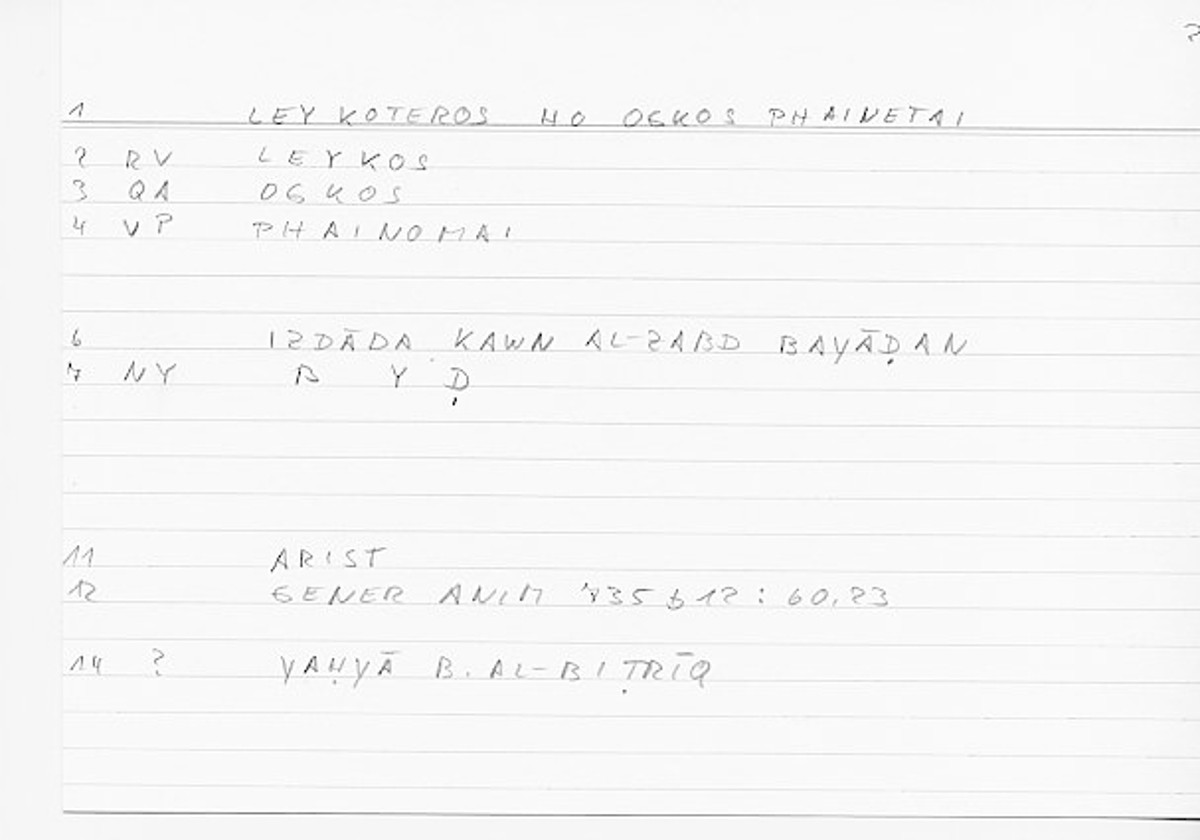 1 LEYKOTEROS HO OGKOS PHAINETAI
2 RV LEYKOS
3 QA OGKOS
4 VP PHAINOMAI
6 IZDĀDA KAWN AL-ZABD BAYĀḌAN
7 NY B Y Ḍ
11 ARIST
12 GENER ANIM 735b12: 60,23
14 ? YAḤYĀ B. AL-BIṬRĪQ